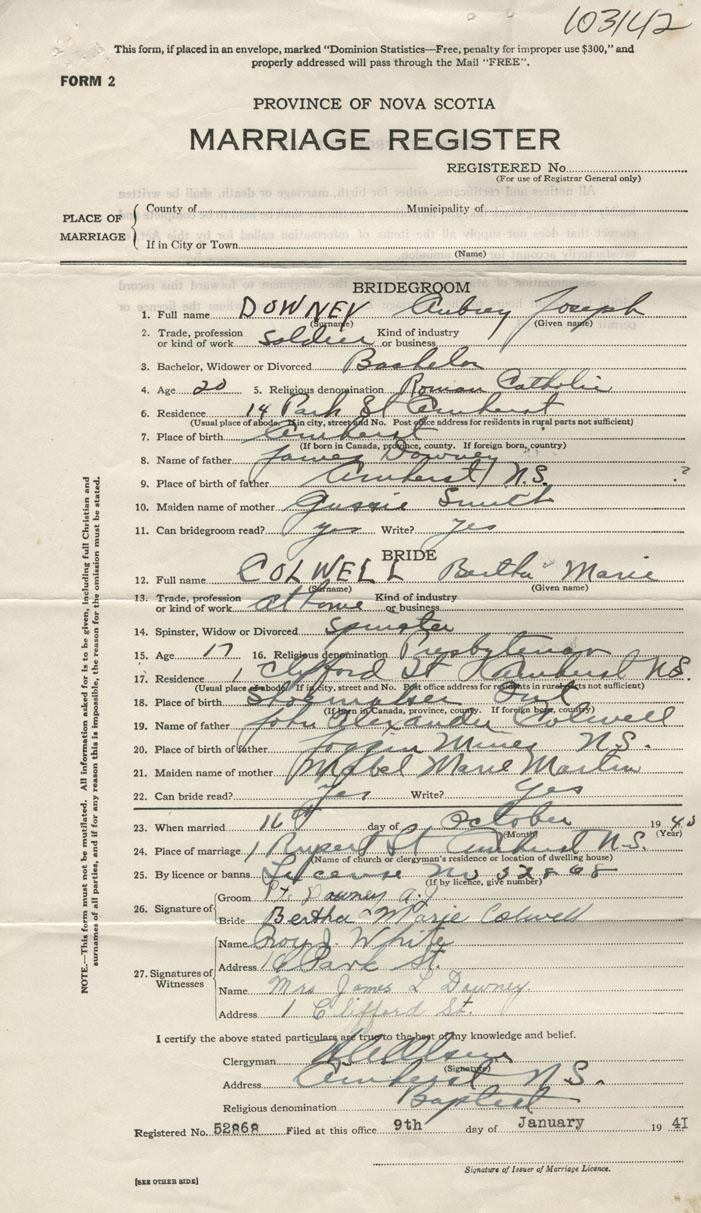 103142
This form, if placed in an envelope, marked "Dominion Statistics—Free, penalty for improper use $300," and
properly addressed will pass through the Mail "FREE".
FORM 2
PROVINCE OF NOVA SCOTIA
MARRIAGE REGISTER
REGISTERED No.
(For use of Registrar General only)
PLACE OF MARRIAGE
County of Municipality of
If in City or Town
(Name)
BRIDEGROOM
1. Full name DOWNEY Aubrey Joseph
(Surname) (Given name)
2. Trade, profession or kind of work Soldier Kind of industry or business
3. Bachelor, Widower or Divorced Bachelor
4. Age 20 5. Religious denomination Roman Catholic
6. Residence 14 Park St Amherst
(Usual place of abode. If in city, street and No. Post office address for residents in rural parts not sufficient)
7. Place of birth Amherst
(If born in Canada, province, county. If foreign born, country)
8. Name of father James Downey
9. Place of birth of father Amherst N.S. ?
10. Maiden name of mother Gussie Smith
11. Can bridegroom read? yes Write? yes
BRIDE
12. Full name COLWELL Bertha Marie
(Surname) (Given name)
13. Trade, profession or kind of work at home Kind of industry or business
14. Spinster, Widow or Divorced Spinster
15. Age 17 16. Religious denomination Presbyterian
17. Residence 1 Clifford St Amherst N.S.
(Usual place of abode. If in city, street and No. Post office address for residents in rural parts not sufficient)
18. Place of birth Ont
(If born in Canada, province, county. If foreign born, country)
19. Name of father John Alexander Colwell
20. Place of birth of father Joggin Mines N.S.
21. Maiden name of mother Mabel Marie Martin
22. Can bride read? Yes Write? Yes
23. When married 16 day of October 19 40
(Month) (Year)
24. Place of marriage 1 Rupert St Amherst N.S.
(Name of church or clergyman's residence or location of dwelling house)
25. By licence or banns License No 52868
(If by licence, give number)
26. Signature of
Groom Pt. Downey A.J
Bride Bertha Marie Colwell
27. Signatures of Witnesses
Name Roy J. White
Address 16 Park St.
Name Mrs James L Downey.
Address 1 Clifford St.
I certify the above stated particulars are true to the best of my knowledge and belief.
Clergyman
(Signature)
Address Amherst N.S.
Religious denomination Baptist
Registered No. 52868 Filed at this office 9th day of January 19 41
Signature of Issuer of Marriage Licence.
[SEE OTHER SIDE]
NOTE.—This form must not be mutilated. All information asked for is to be given, including full Christian and
surnames of all parties, and if for any reason this is impossible, the reason for the omission must be stated.